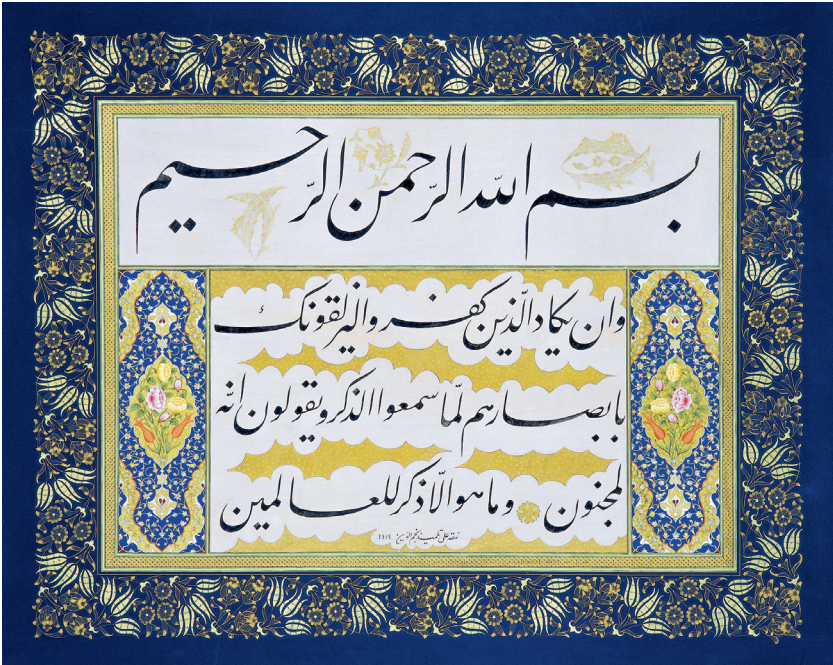 بسم الله الرّحمن الرّحيم
وان يكاد الّذين كفروا ليزلقونك
بابصارهم لمّا سمعوا الذكر ويقولون انّه
لمجنون وما هو الّا ذكر للعالمين
نمقه علي